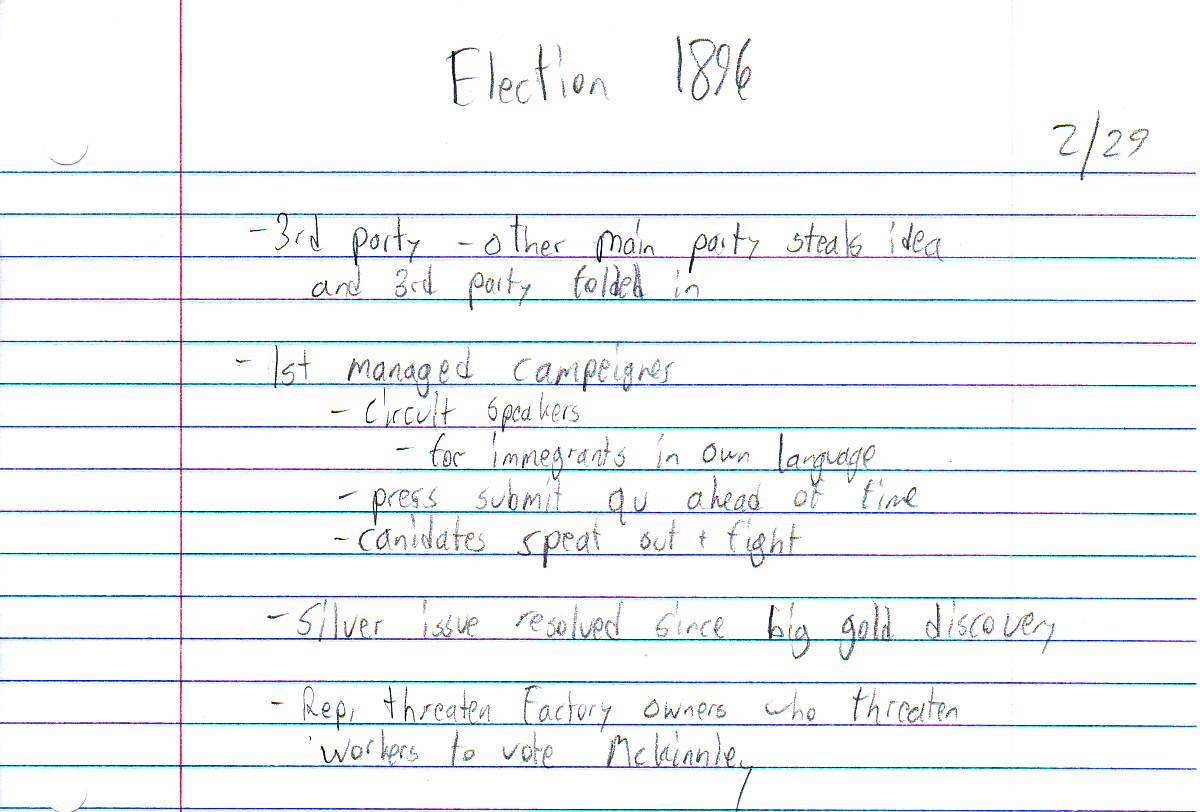 Election 1896
2/29
- 3rd party - other main party steals idea
and 3rd party folded in
- 1st managed campeignes
- Circuit speakers
- for immegrants in own language
- press submit qu ahead of time
- canidates speat out + fight
- Silver issue resolved since big gold discovery
- Rep, threaten Factory owners who threaten
workers to vote Mckinnley